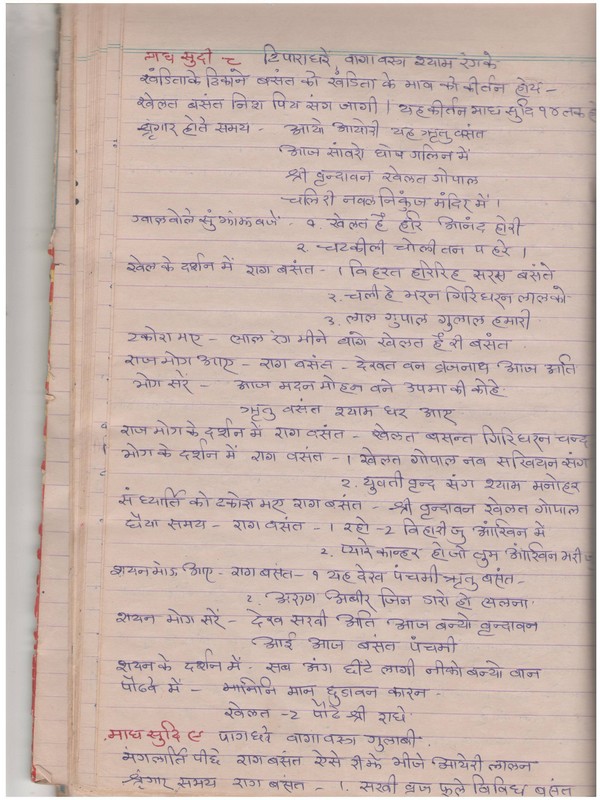 माघ सुदी ८ टिपाराधरे, वागा वस्त्र श्याम रंग के
खंडिता के ठिकाने बसंत को खंडिता के भाव को कीर्तन होय -
खेलत बसंत निश पिय संग जागी । यह कीर्तन माघ सुदि १४ तक हो
श्रृंगार होते समय - आयो आयोरी यह ऋतु वसंत
आज सांवरो घोष गलिन में
श्री वृन्दावन खेलत गोपाल
चलि री नवल निकुंज मंदिर में ।
ग्वाल बोले सुं झांझ बजें - १. खेलत है हरि आनंद होरी
२. चटकीली चोली तन पहरे ।
खेल के दर्शन में राग बसंत - १ विहरत हरिरिह सरस बसंते
२. चली है भरन गिरिधरन लाल को
३. लाल गुपाल गुलाल हमारी
टकोरा भए - लाल रंग भीने बागे खेलत हैं री बसंत
राज भोग आए - राग बसंत - देखत वन व्रजनाथ आज अति
भोग सरें - आज मदन मोहन बने उपमा की कोहे.
ऋतु वसंत श्याम घर आए
राज भोग के दर्शन में राग वसंत - खेलत बसन्त गिरिधरन चन्द
भोग के दर्शन में राग वसंत - १ खेलत गोपाल नव सखियन संग
२. युवती वृन्द संग श्याम मनोहर
संध्यार्ति को टकोरा भए राग बसंत - श्री वृन्दावन खेलत गोपाल
घैया समय - राग वसंत - १ रहो -२ विहारी जु आंखिन में
२. प्यारे कान्हर हो जो तुम आंखिन भरी
शयन भोग आए - राग बसंत - १ यह देख पंचमी ऋतु बसंत -
२. अरुण अबीर जिन डारो हो ललना.
शयन भोग सरें - देख सखी अति आज बन्यो वृन्दावन
आई आज बसंत पंचमी
शयन के दर्शन में - सब अंग छींटे लागी नीको बन्यो वान
पोंढवे में - मानिनि मान छुडावन कारन -
खेलत -२ पोंढे श्री राधे.
माघ सुदि ९ पाग धरे वागा वस्त्र गुलाबी.
मंगलार्ति पीछे राग बसंत ऐसे रीझे भीजे आयेरी लालन
श्रृंगार समय राग बसंत - १. सखी व्रज फूले विविध बसंत